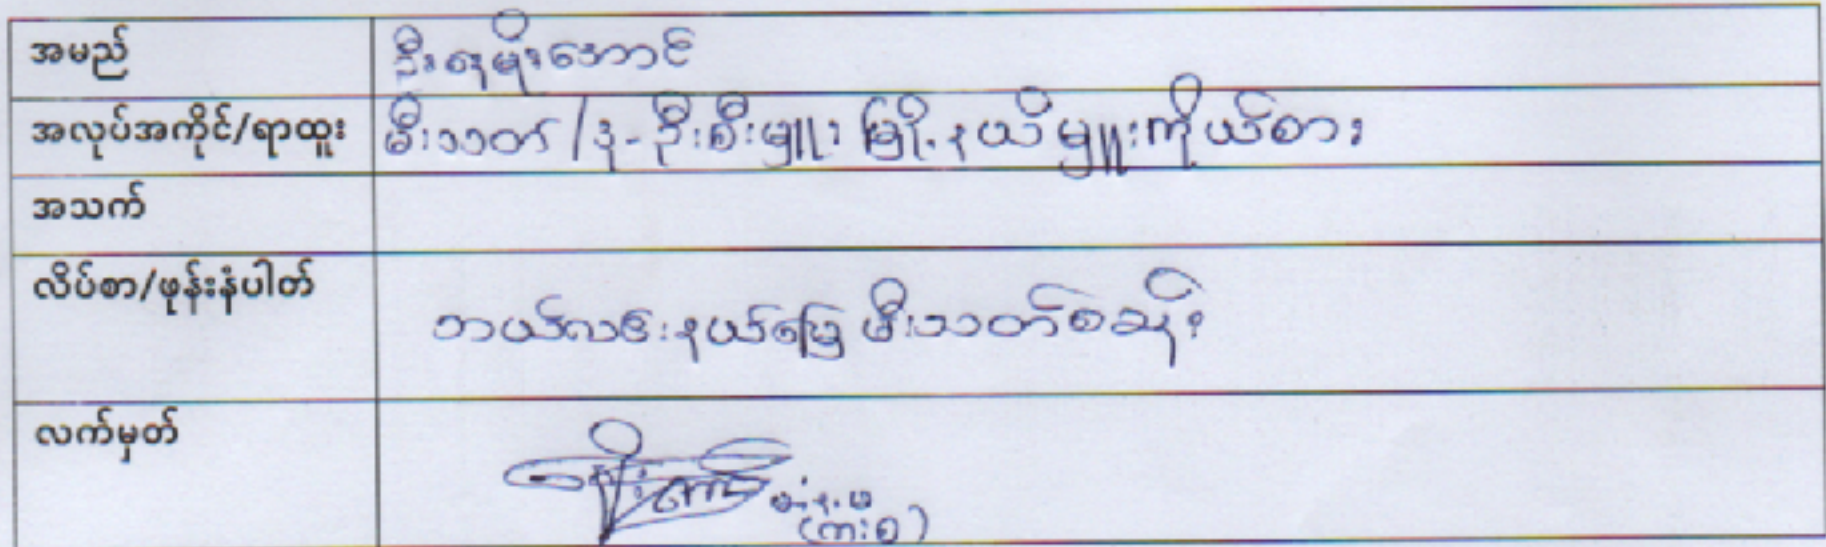 အမည် ဦးနေမျိုးအောင်
အလုပ်အကိုင်/ရာထူး မီးသတ်/ဒု-ဦးစီးမှူး မြို့နယ်မှူးကိုယ်စား
အသက်
လိပ်စာ/ဖုန်းနံပါတ် ဘယ်လင်းနယ်မြေ မီးသတ်စခန်း
လက်မှတ်
(ကးစ)